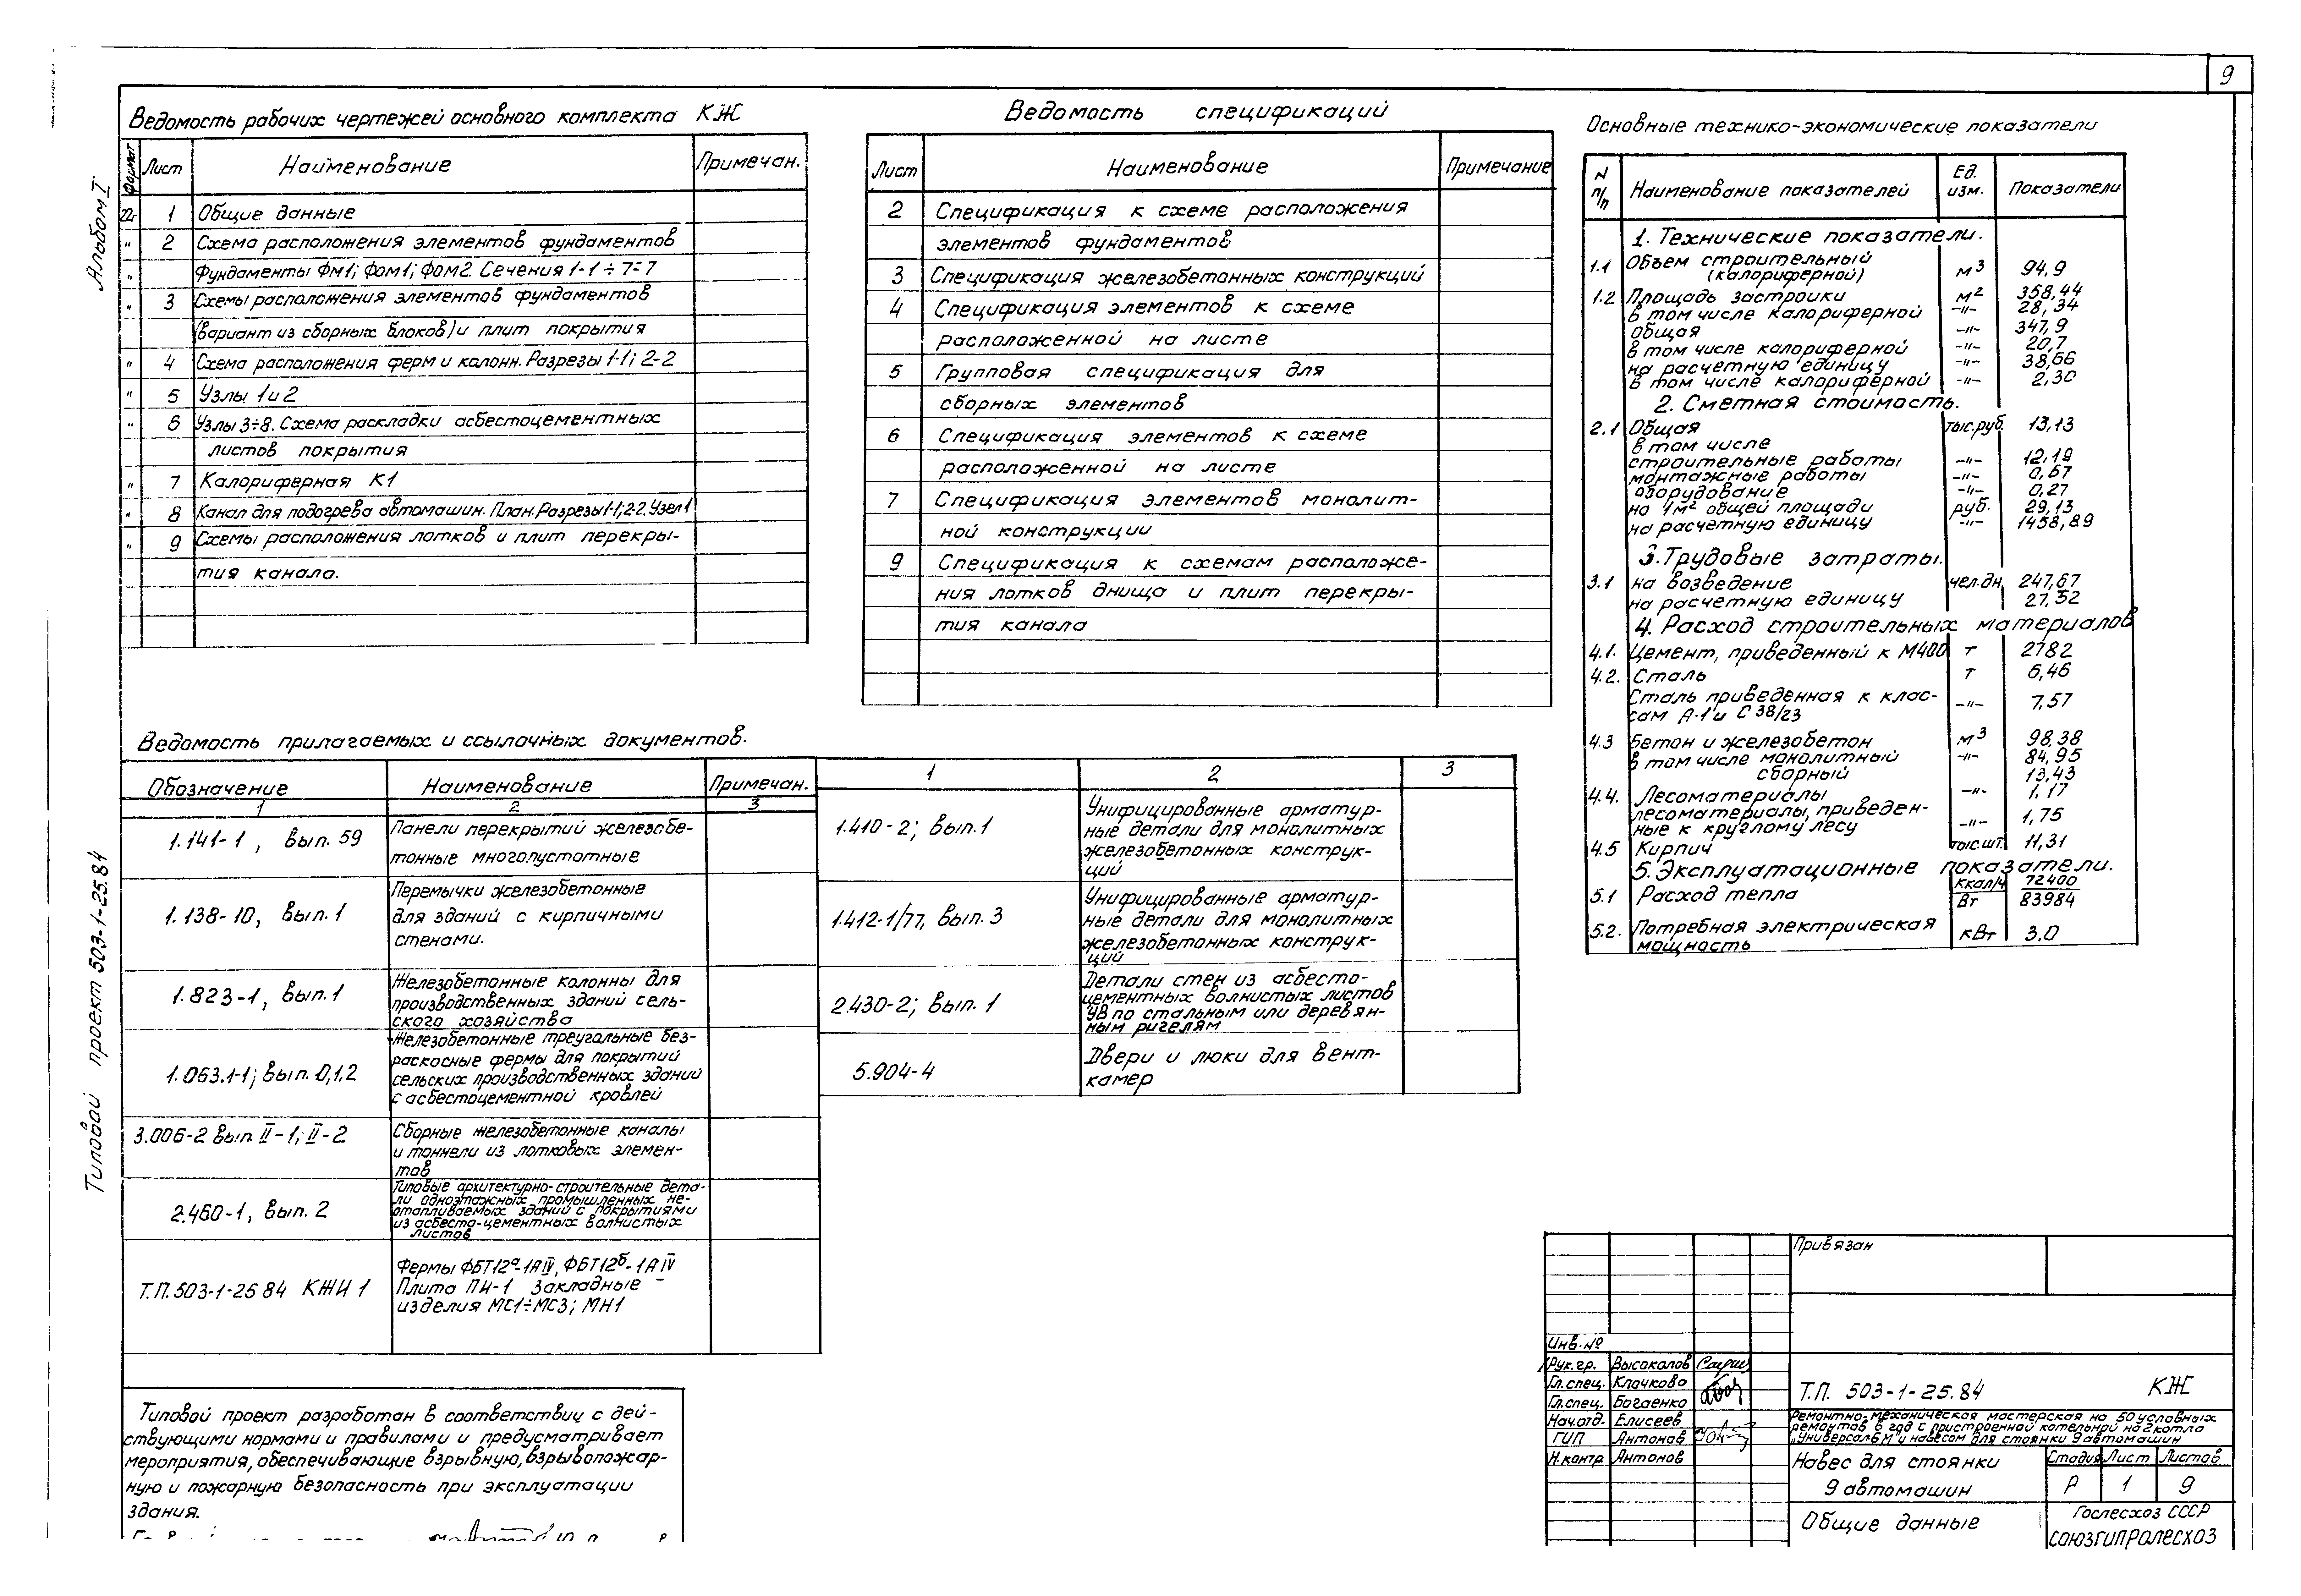 9
Альбом I
Типовой проект 503-1-25.84
Ведомость рабочих чертежей основного комплекта КЖ
Формат Лист Наименование Примечан.
22г 1 Общие данные
" 2 Схема расположения элементов фундаментов
" Фундаменты Фм1; Фом1; Фом2. Сечения 1-1 ÷ 7-7
" 3 Схемы расположения элементов фундаментов
(вариант из сборных блоков) и плит покрытия
" 4 Схема расположения ферм и колонн. Разрезы 1-1; 2-2
" 5 Узлы 1 и 2
" 6 Узлы 3÷8. Схема раскладки асбестоцементных
листов покрытия
" 7 Калориферная К1
" 8 Канал для подогрева автомашин. План. Разрезы 1-1; 2-2. Узел 1
" 9 Схемы расположения лотков и плит перекры-
тия канала.
Ведомость спецификаций
Лист Наименование Примечание
2 Спецификация к схеме расположения
элементов фундаментов
3 Спецификация железобетонных конструкций
4 Спецификация элементов к схеме
расположенной на листе
5 Групповая спецификация для
сборных элементов
6 Спецификация элементов к схеме
расположенной на листе
7 Спецификация элементов монолит-
ной конструкции
9 Спецификация к схемам расположе-
ния лотков днища и плит перекры-
тия канала
Основные технико-экономические показатели
N п/п Наименование показателей Ед. изм. Показатели
1. Технические показатели.
1.1 Объем строительный
(калориферной) м3 94,9
1.2 Площадь застройки м2 358,44
в том числе калориферной -"- 28,34
общая -"- 347,9
в том числе калориферной -"- 20,7
на расчетную единицу -"- 38,66
в том числе калориферной -"- 2,30
2. Сметная стоимость.
2.1 Общая тыс.руб. 13,13
в том числе
строительные работы -"- 12,19
монтажные работы -"- 0,67
оборудование -"- 0,27
на 1м2 общей площади руб. 29,13
на расчетную единицу -"- 1458,89
3. Трудовые затраты.
3.1 на возведение чел.дн. 247,67
на расчетную единицу 27,52
4. Расход строительных материалов
4.1. Цемент, приведенный к М400 т 2782
4.2. Сталь т 6,46
Сталь приведенная к клас-
сам А-1 и С 38/23 -"- 7,57
4.3 Бетон и железобетон м3 98,38
в том числе монолитный -"- 84,95
сборный 13,43
4.4. Лесоматериалы -"- 1,17
лесоматериалы, приведен-
ные к круглому лесу -"- 1,75
4.5 Кирпич тыс.шт. 11,31
5. Эксплуатационные показатели.
5.1 Расход тепла Ккал/ч 72400
Вт 83984
5.2. Потребная электрическая
мощность кВт 3.0
Ведомость прилагаемых и ссылочных документов.
Обозначение Наименование Примечан.
1 2 3
1.141-1, вып. 59 Панели перекрытий железобе-
тонные многопустотные
1.138-10, вып. 1 Перемычки железобетонные
для зданий с кирпичными
стенами.
1.823-1, вып. 1 Железобетонные колонны для
производственных зданий сель-
ского хозяйства
1.063.1-1; вып. 0,1,2 Железобетонные треугольные без-
раскосные фермы для покрытий
сельских производственных зданий
с асбестоцементной кровлей
3.006-2 вып. II-1; II-2 Сборные железобетонные каналы
и тоннели из лотковых элемен-
тов
2.460-1, вып. 2 Типовые архитектурно-строительные дета-
ли одноэтажных промышленных не-
отапливаемых зданий с покрытиями
из асбесто-цементных волнистых
листов
Т.П. 503-1-25 84 КЖИ 1 Фермы ФБТ12а-1АIV, ФБТ12б-1АIV
Плита ПИ-1 Закладные
изделия МС1÷МС3; МН1
1 2 3
1.410-2; вып. 1 Унифицированные арматур-
ные детали для монолитных
железобетонных конструк-
ций
1.412-1/77, вып. 3 Унифицированные арматур-
ные детали для монолитных
железобетонных конструк-
ций
2.430-2; вып. 1 Детали стен из асбесто-
цементных волнистых листов
УВ по стальным или деревян-
ным ригелям
5.904-4 Двери и люки для вент-
камер
Типовой проект разработан в соответствии с дей-
ствующими нормами и правилами и предусматривает
мероприятия, обеспечивающие взрывную, взрывопожар-
ную и пожарную безопасность при эксплуатации
здания.
Привязан
Инв. №
Рук.гр. Высокалов
Гл.спец. Клочкова
Гл.спец. Богаенко
Нач.отд. Елисеев
ГИП Антонов
Н.контр. Антонов
Т.П. 503-1-25.84 КЖ
Ремонтно-механическая мастерская на 50 условных
ремонтов в год с пристроенной котельной на 2 котла
„Универсал 6М" и навесом для стоянки 9 автомашин
Навес для стоянки
9 автомашин
Стадия Лист Листов
Р 1 9
Общие данные
Гослесхоз СССР
СОЮЗГИПРОЛЕСХОЗ